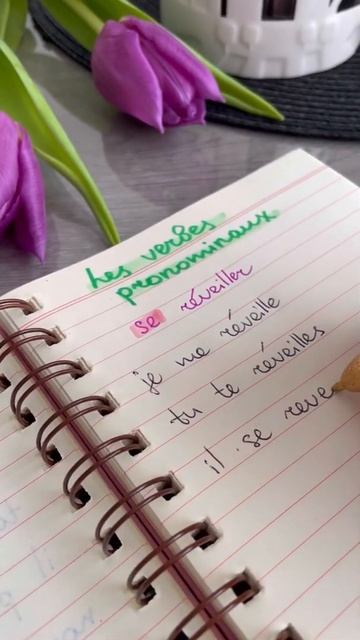 Les verbes
pronominaux
se réveiller
je me réveille
tu te réveilles
il se reve